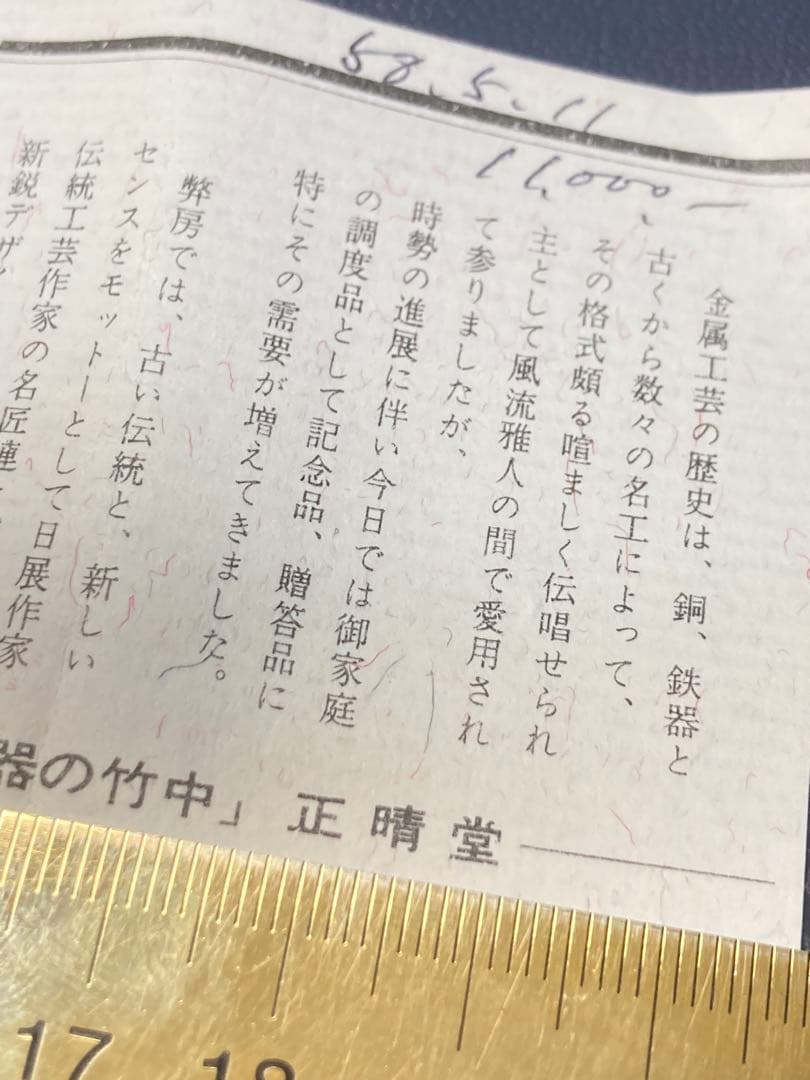 58.5.11
11,000ー
金属工芸の歴史は、銅、鉄器と
古くから数々の名工によって、
その格式頗る喧ましく伝唱せられ
主として風流雅人の間で愛用され
て参りましたが、
時勢の進展に伴い今日では御家庭
の調度品として記念品、贈答品に
特にその需要が増えてきました。
弊房では、古い伝統と、新しい
センスをモットーとして日展作家
伝統工芸作家の名匠連
新鋭デザ
器の竹中」正晴堂
17 18